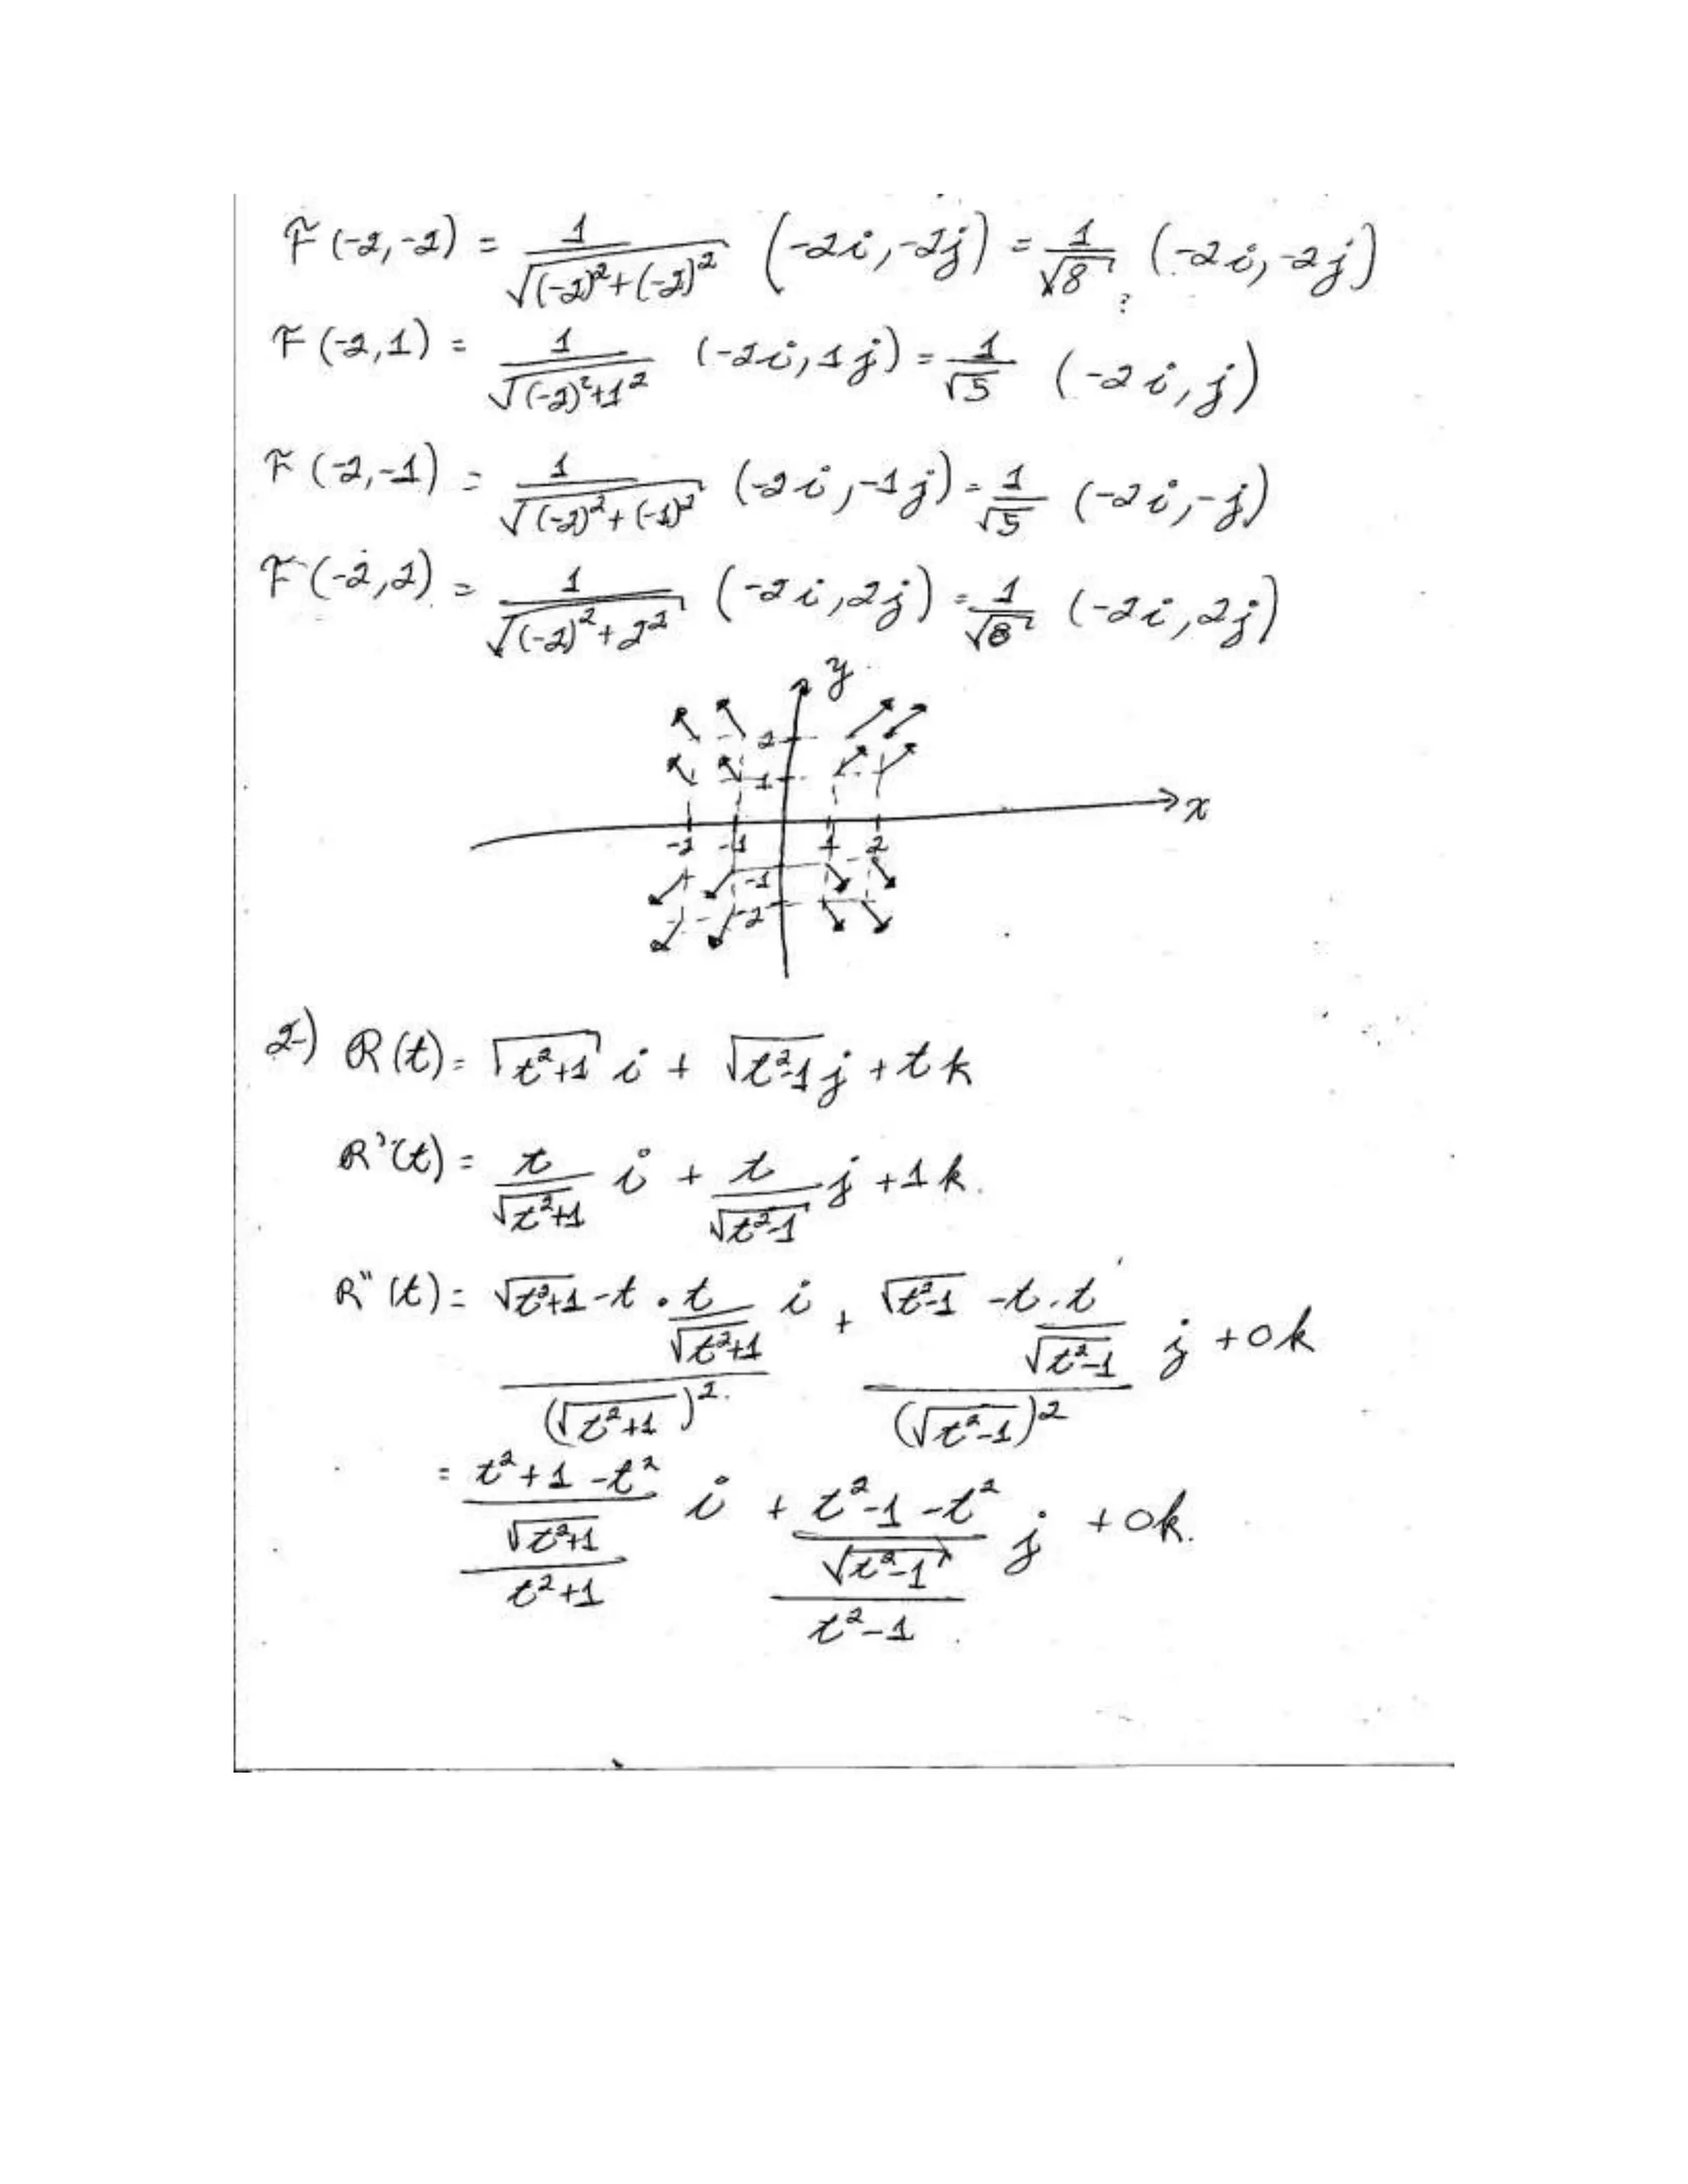 F(-2,-2) = 1/√((-2)²+(-2)²) (-2i,-2j) = 1/√8 (-2i,-2j)
?
F(-2,1) = 1/√((-2)²+1²) (-2i,1j) = 1/√5 (-2i,j)
F(-2,-1) = 1/√((-2)²+(-1)²) (-2i,-1j) = 1/√5 (-2i,-j)
F(-2,2) = 1/√((-2)²+2²) (-2i,2j) = 1/√8 (-2i,2j)
y
2
1
x
-2 -1 1 2
-1
-2
2) R(t) = √(t²+1) i + √(t²-1) j + t k
R'(t) = t/√(t²+1) i + t/√(t²-1) j + 1k.
R"(t) = (√(t²+1) - t · t/√(t²+1))/(√(t²+1))² i + (√(t²-1) - t.t/√(t²-1))/(√(t²-1))² j + 0k
= ((t²+1-t²)/√(t²+1))/(t²+1) i + ((t²-1-t²)/√(t²-1))/(t²-1) j + 0k.